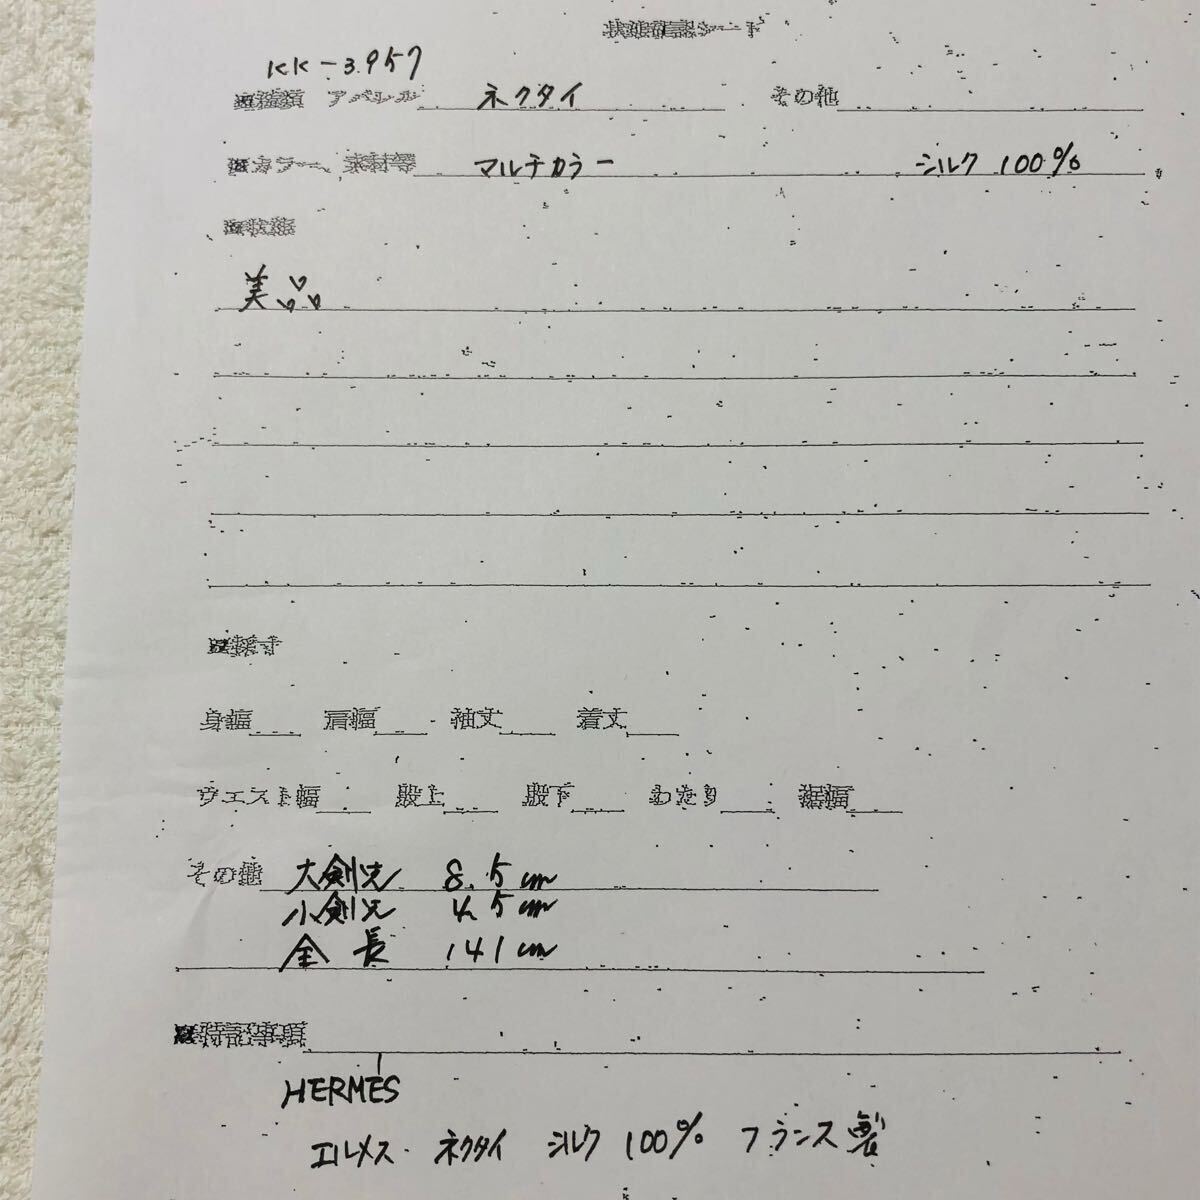 状態確認シート
KK-3.957
■種類 アパレル ネクタイ その他
■カラー、素材等 マルチカラー シルク 100%
■状態
美品
■採寸
身幅 肩幅 袖丈 着丈
ウエスト幅 股上 股下 わたり 裾幅
その他 大剣先 8.5cm
小剣先 4.5cm
全長 141cm
■特記事項
HERMÈS
エルメス. ネクタイ シルク 100% フランス製